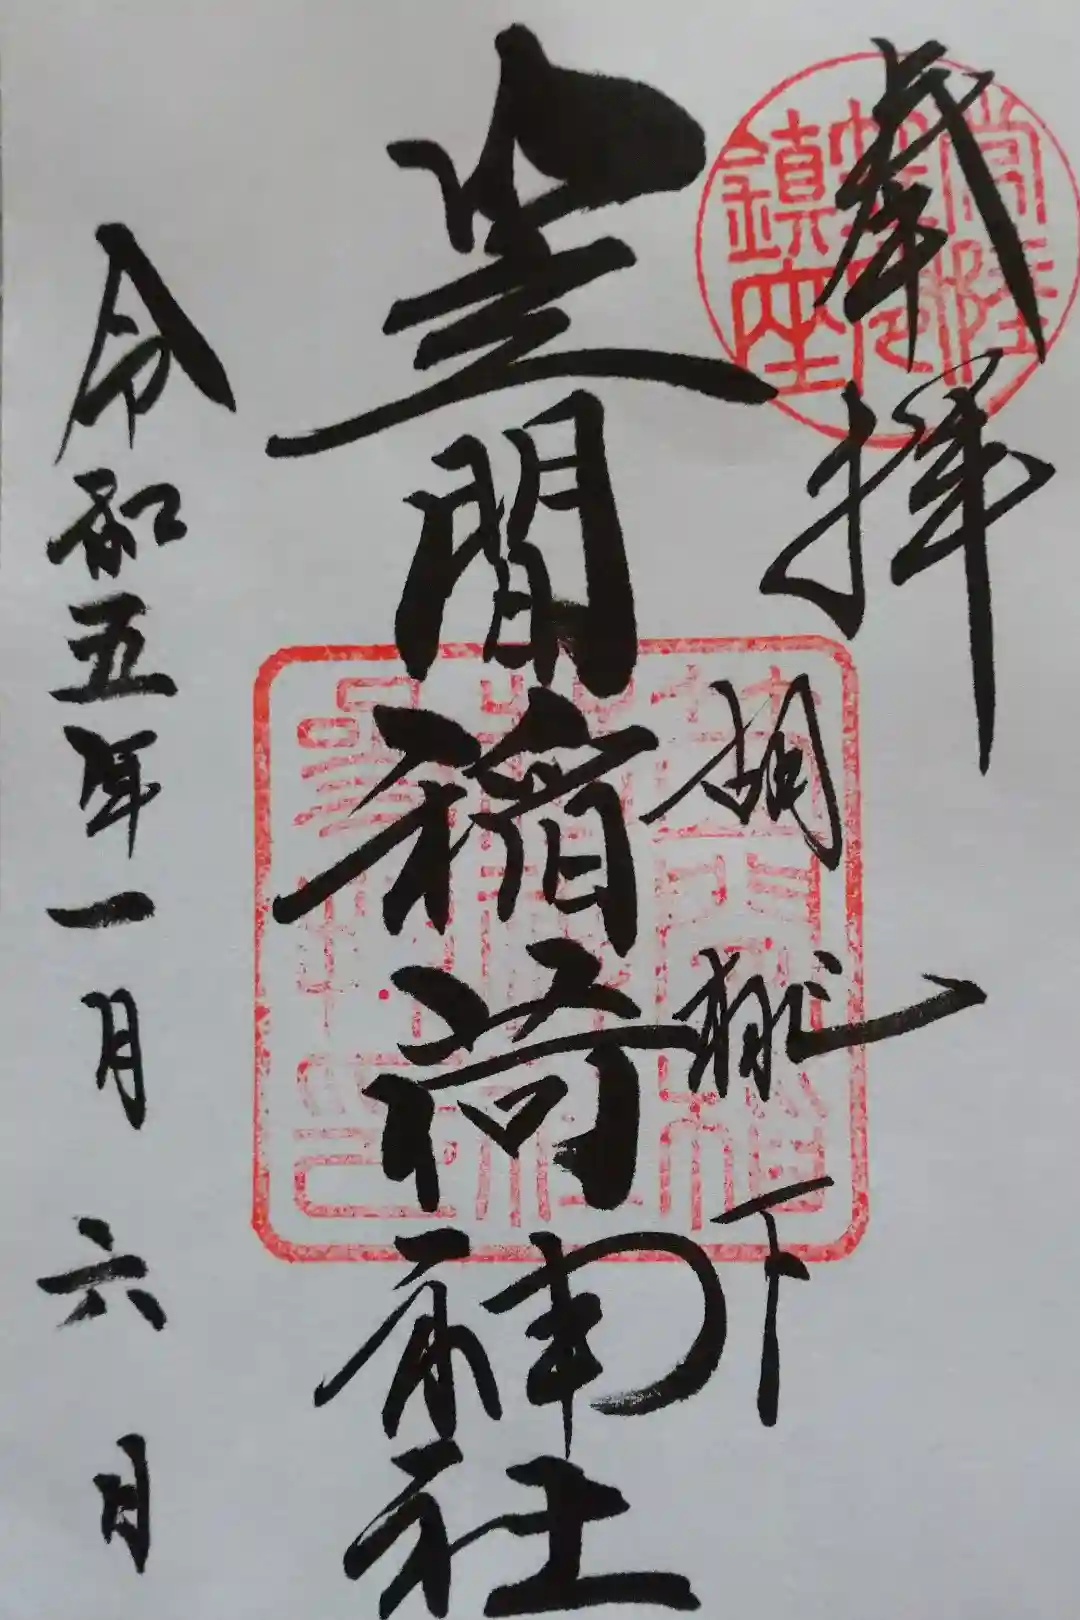 奉拝
胡桃下
笠間稲荷神社
令和五年一月六日
常陸笠間鎮座